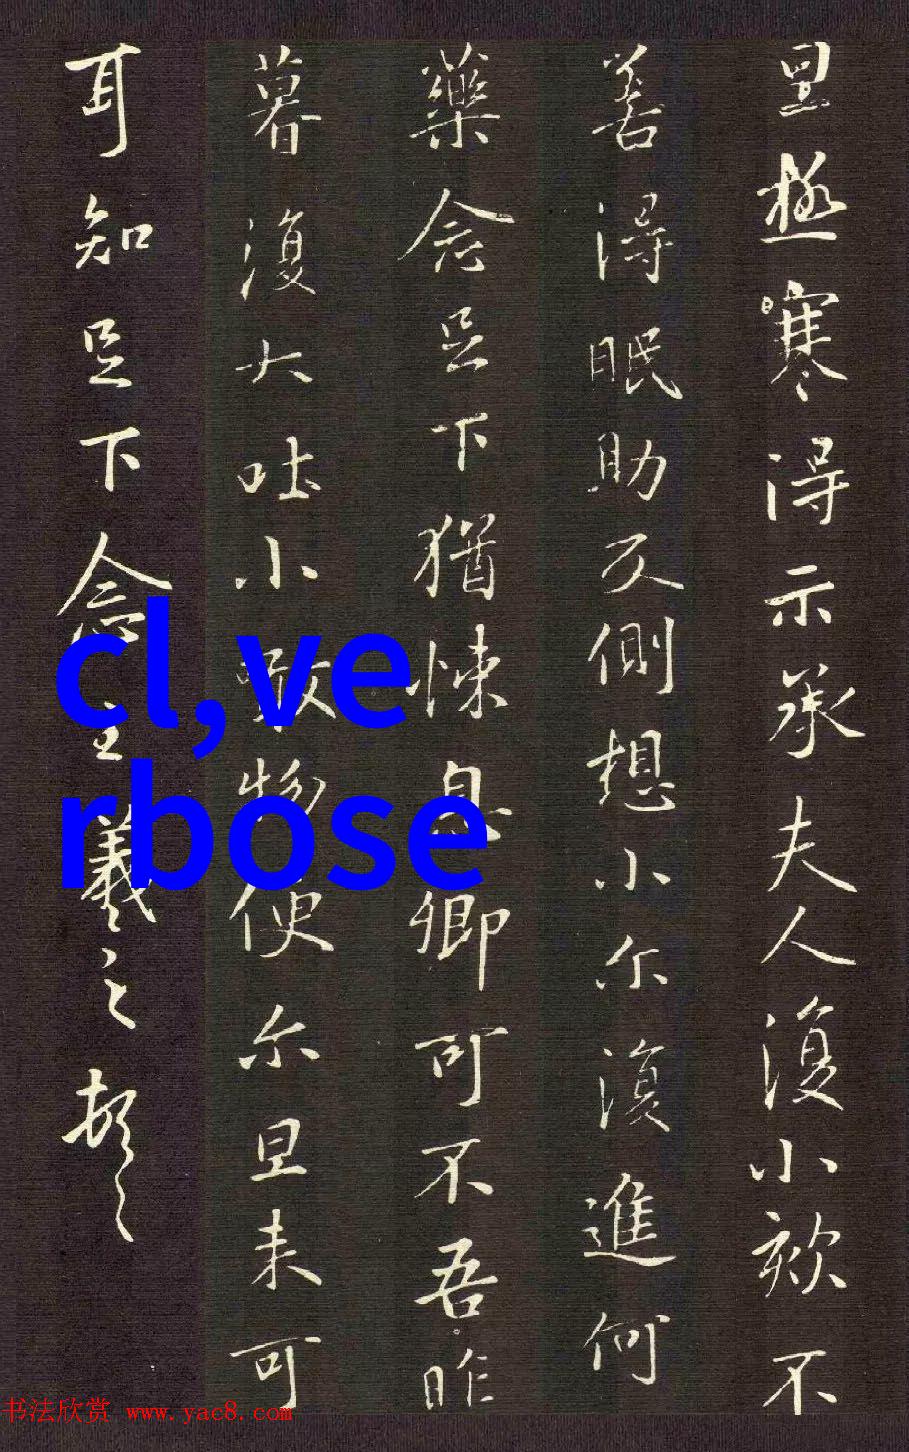 里極寒得示承夫人復小欬不
善得眠助反側想小尔復進何
藥念足下猶悚息卿可不吾昨
暮復大吐小啖物便尔旦来可
耳知足下念王羲之頓
cl,ve
rbose
书法欣赏 www.yac8.com